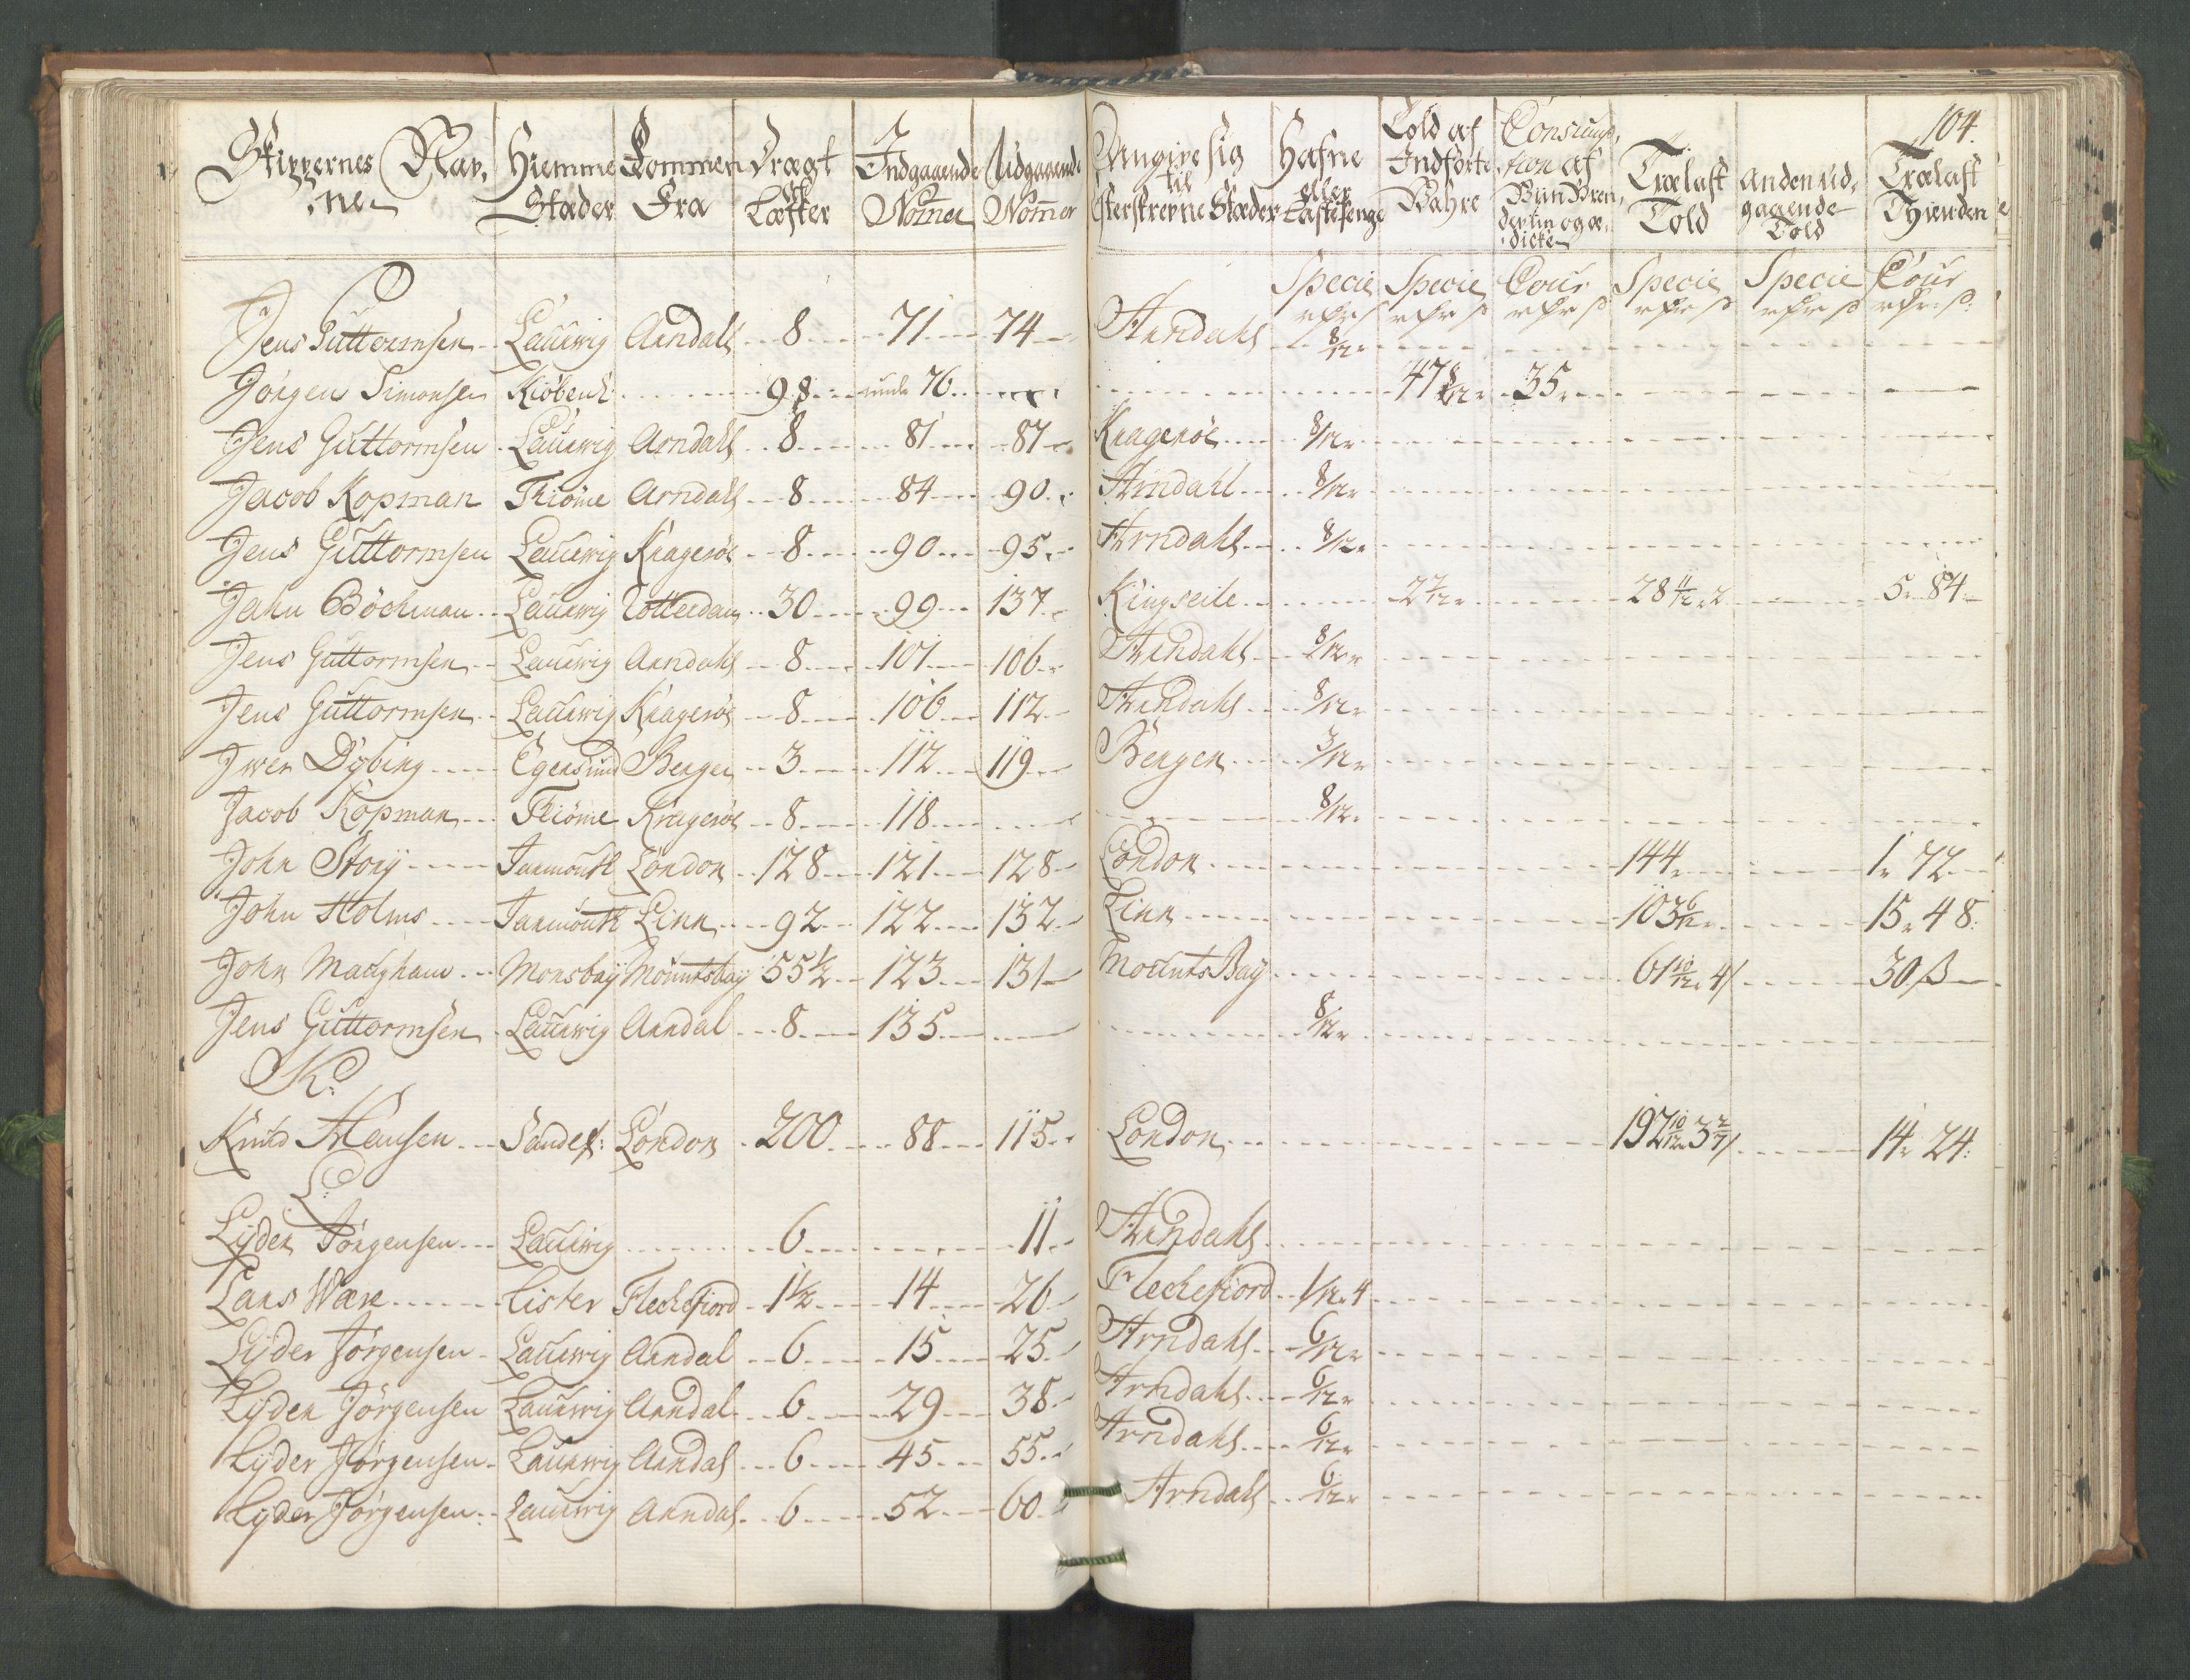 104.
Skippernes Nav, Hiemme Kommen Drægt Indgaaende Udgaaende Angive sig Hafne Told af Consump, Trælast Anden ud, Trælast
ne Stæder Fra Læster Nommer Nommer til efterskrevne Stæder eller Lastepenge Indførte Wahre tion af Told gaaende Told Thienden
Specie Specie Cour Specie Specie Cour
J
Jens Guttormsen Laurwig Arndahl 8 71 74 Arndahl 8/12
Jørgen Simonsen Kiøbenh 98 76 47 8/12 35
Jens Guttormsen Laurwig Arndahl 8 81 87 Kragerøe 8/12
Jacob Kopman Thiøme Arndahl 8 84 90 Arndahl 8/12
Jens Guttormsen Laurwig Kragerøe 8 90 95 Arndahl 8/12
Jahn Böchman Laurwig Rotterdam 30 99 137 Kingseile 2 7/12 28 11/12 2 5 84
Jens Guttormsen Laurwig Arndahl 8 101 106 Arndahl 8/12
Jens Guttormsen Laurwig Kragerøe 8 106 112 Arndahl 8/12
Iwer Dybing Egersund Bergen 3 112 119 Bergen 3/12
Jacob Kopman Thiøme Kragerøe 8 118 8/12
John Story Jarmouth London 128 121 128 London 144 1 72
John Holms Jarmouth Linn 92 122 132 Linn 103 6/12 15 48
John Maugham Monsbay Mountsbay 55 1/2 123 131 Mounts Bay 61 10/12 4 30 ß
Jens Guttormsen Laurwig Arndal 8 135 8/12
K
Knud Hansen Sandef: London 200 88 115 London 192 10/12 3 2/7 14 24
L
Lyder Jørgensen Laurwig 6 11 Arndahl
Lars Ware Lister Flechefiord 1 1/2 14 26 Flechefiord 1/12 4
Lyder Jørgensen Laurwig Arndal 6 15 25 Arndahl 6/12
Lyder Jørgensen Laurwig Arndal 6 29 38 Arndahl 6/12
Lyder Jørgensen Laurwig Arndal 6 45 55 Arndahl 6/12
Lyder Jørgensen Laurwig Arndal 6 52 60 Arndahl 6/12